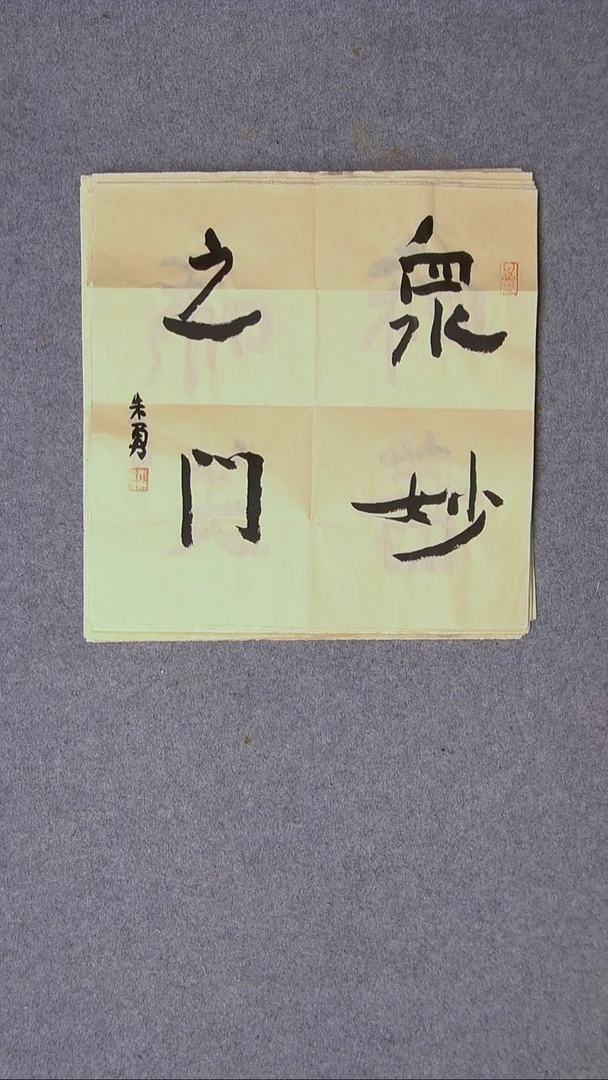 眾妙
之门
朱勇